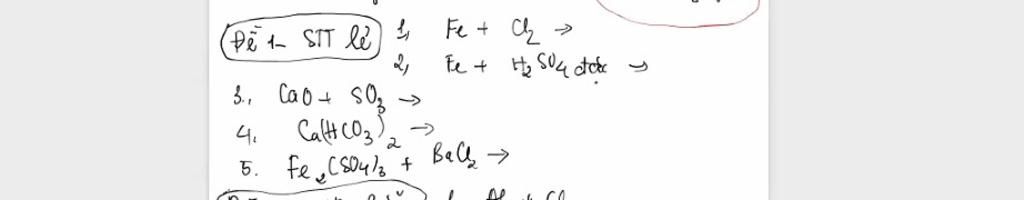 Đề 1 - STT lẻ 1, Fe + Cl2 →
2, Fe + H2SO4 đặc →
3., CaO + SO3 →
4. Ca(HCO3)2 →
5. Fe2(SO4)3 + BaCl2 →